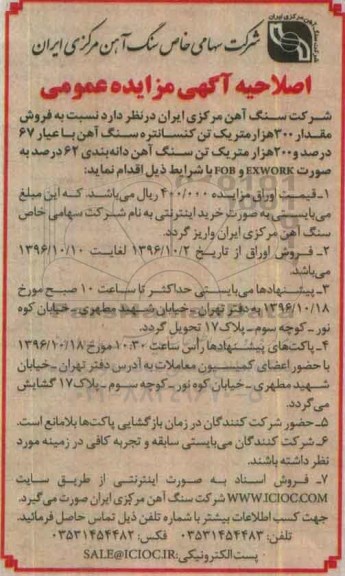 شرکت سهامی خاص سنگ آهن مرکزی ایران
اصلاحیه آگهی مزایده عمومی
شرکت سنگ آهن مرکزی ایران درنظر دارد نسبت به فروش
مقدار ۳۰۰هزار متریک تن کنسانتره سنگ آهن با عیار ۶۷
درصد و۲۰۰هزار متریک تن سنگ آهن دانه‌بندی ۶۲ درصد به
صورت EXWORK و FOB با شرایط ذیل اقدام نماید:
۱ـ قیمت اوراق مزایده ۴۰۰/۰۰۰ ریال می‌باشد. که این مبلغ
می‌بایستی به صورت خرید اینترنتی به نام شرکت سهامی خاص
سنگ آهن مرکزی ایران واریز گردد.
۲ـ فروش اوراق از تاریخ ۱۳۹۶/۱۰/۲ لغایت ۱۳۹۶/۱۰/۱۰
می‌باشد.
۳ـ پیشنهادها می‌بایستی حداکثر تا ساعت ۱۰ صبح مورخ
۱۳۹۶/۱۰/۱۸ به دفتر تهران ـ خیابان شهید مطهری ـ خیابان کوه
نور ـ کوچه سوم ـ پلاک۱۷ تحویل گردد.
۴ـ پاکت‌های پیشنهادها رأس ساعت ۱۰:۳۰ مورخ ۱۳۹۶/۱۰/۱۸
با حضور اعضای کمیسیون معاملات به آدرس دفتر تهران ـ خیابان
شهید مطهری ـ خیابان کوه نور ـ کوچه سوم ـ پلاک۱۷ گشایش
می‌گردد.
۵ـ حضور شرکت کنندگان در زمان بازگشایی پاکت‌ها بلامانع است.
۶ـ شرکت کنندگان می‌بایستی سابقه و تجربه کافی در زمینه مورد
نظر داشته باشند.
۷ـ فروش اسناد به صورت اینترنتی از طریق سایت
WWW.ICIOC.COM شرکت سنگ آهن مرکزی ایران صورت می‌گیرد.
جهت کسب اطلاعات بیشتر با شماره تلفن ذیل تماس حاصل فرمائید.
تلفن: ۰۳۵۳۱۴۵۴۴۸۳ فکس: ۰۳۵۳۱۴۵۴۴۸۲
پست الکترونیکی: SALE@ICIOC.IR